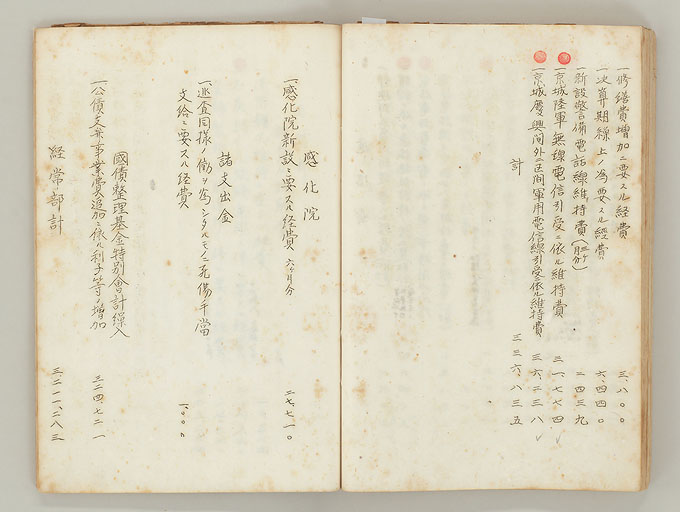 一、修繕費増加ニ要スル経費 三、八〇〇
一、決算期繰上ノ為要スル経費 六、四四〇
一、新設警備電話線維持費 二四三九
一、京城陸軍無線電信引受ニ依ル維持費 三一、七七四
一、京城慶興間外二区間軍用電信線引受ニ依ル維持費 三六、二三八
計 三三六、八三五
感化院
一、感化院新設ニ要スル経費 六ヶ月分 二七、七一〇
諸支出金
一、巡査同様ノ働ヲ為シタルモノニ死傷手當
支給ニ要スル経費 一、〇〇〇
國債整理基金特別會計繰入
一、公債支弁事業費追加ニ依ル利子等ノ増加 三二四、七二一
経常部計 三、二一一、二八三